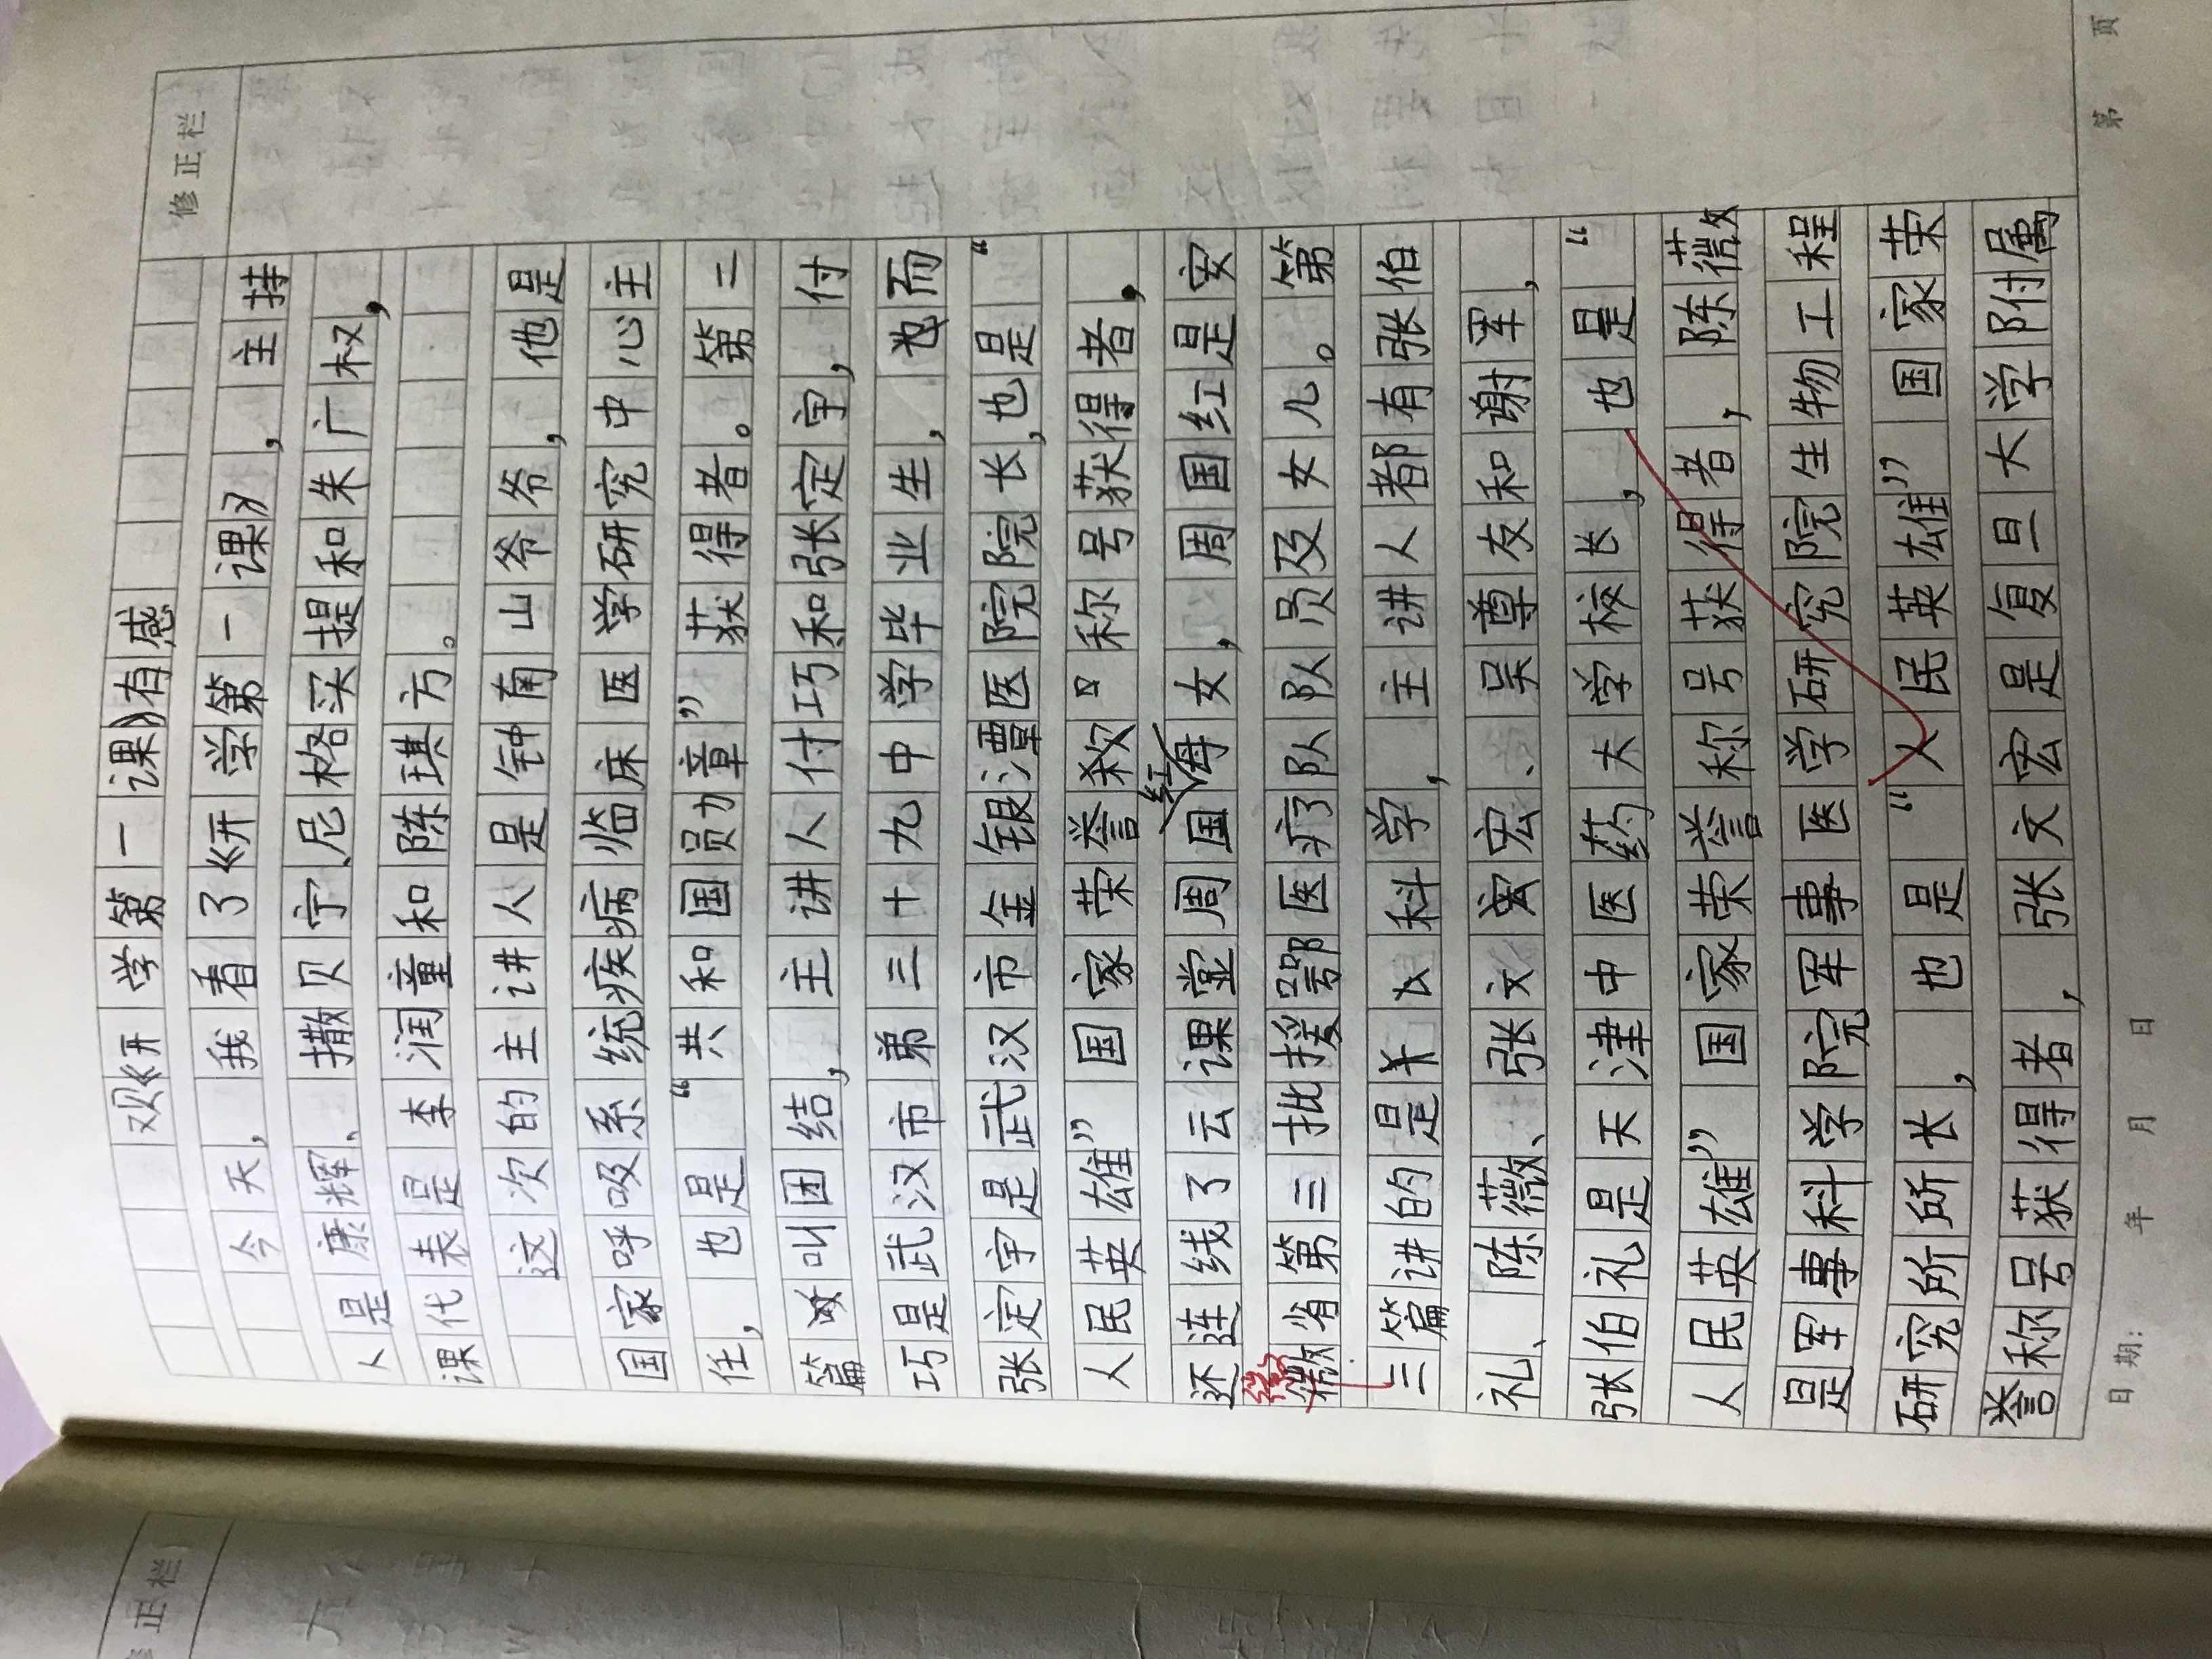 修正栏
观《开学第一课》有感
今天，我看了《开学第一课》，主持
人是康辉、撒贝宁、尼格买提和朱广权，
课代表是李润童和陈琪方。
这次的主讲人是钟南山爷爷，他是
国家呼吸系统疾病临床医学研究中心主
任，也是“共和国员力章”获得者。第二
篇叫团结，主讲人付巧和张定宇，付
巧是武汉市第三十九中学毕业生，而
张定宇是武汉市金银潭医院院长，也是“
人民英雄”国家荣誉称号获得者，
还连线了云课堂周国母女，周国红是安
红
微省第三批援鄂医疗队队员及女儿。第
徽
三篇讲的是科学，主讲人都有张伯
礼、陈薇、张文宏、吴尊友和谢军，
张伯礼是天津中医药大学校长，也是“
人民英雄”国家荣誉称号获得者，陈薇
是军事科学院军事医学研究院生物工程
研究所所长，也是“人民英雄”国家荣
誉称号获得者，张文宏是复旦大学附属
日期： 年 月 日
第 页
修正栏